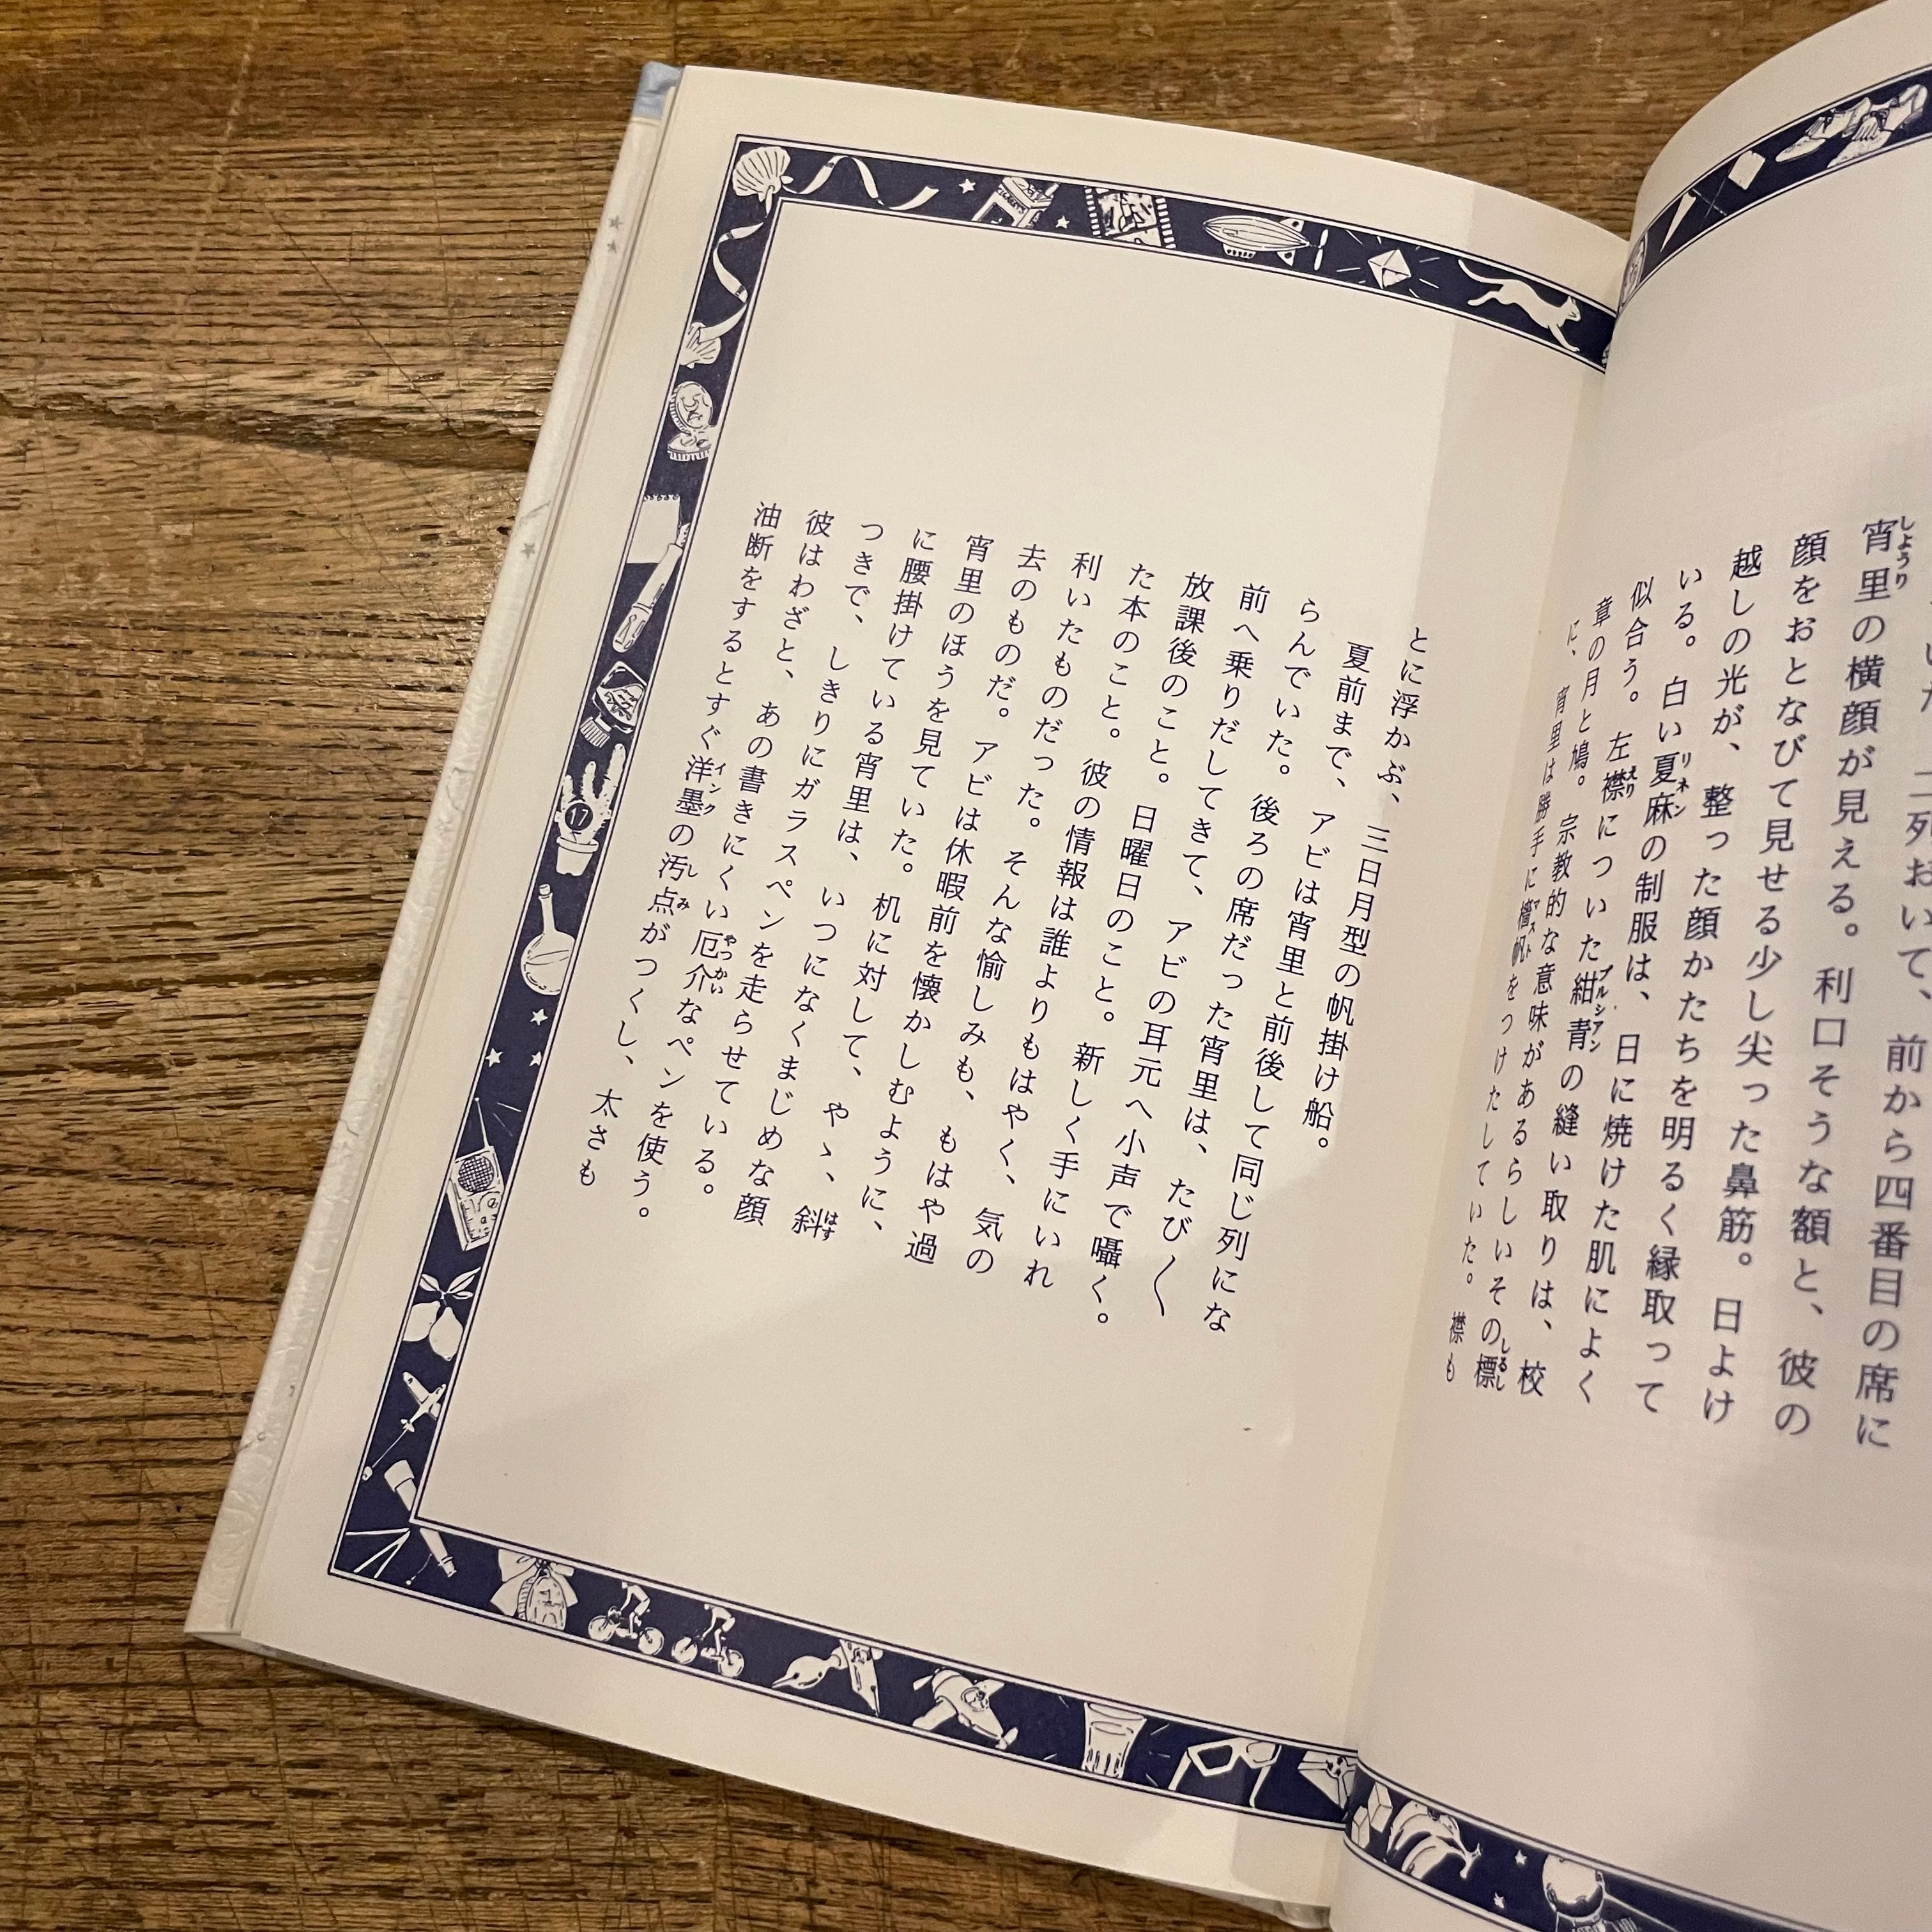 宵里の横顔が見える。利口そうな額と、彼の
顔をおとなびて見せる少し尖った鼻筋。日よけ
越しの光が、整った顔かたちを明るく縁取って
いる。白い夏麻の制服は、日に焼けた肌によく
似合う。左襟についた紺青の縫い取りは、校
章の月と鳩。宗教的な意味があるらしいその標
に、宵里は勝手に檣帆をつけたしていた。襟も
とに浮かぶ、三日月型の帆掛け船。
夏前まで、アビは宵里と前後して同じ列にな
らんでいた。後ろの席だった宵里は、たび〱
前へ乗りだしてきて、アビの耳元へ小声で囁く。
放課後のこと。日曜日のこと。新しく手にいれ
た本のこと。彼の情報は誰よりもはやく、気の
利いたものだった。そんな愉しみも、もはや過
去のものだ。アビは休暇前を懐かしむように、
宵里のほうを見ていた。机に対して、やゝ、斜
に腰掛けている宵里は、いつになくまじめな顔
つきで、しきりにガラスペンを走らせている。
彼はわざと、あの書きにくい厄介なペンを使う。
油断をするとすぐ洋墨の汚点がつくし、太さも
17